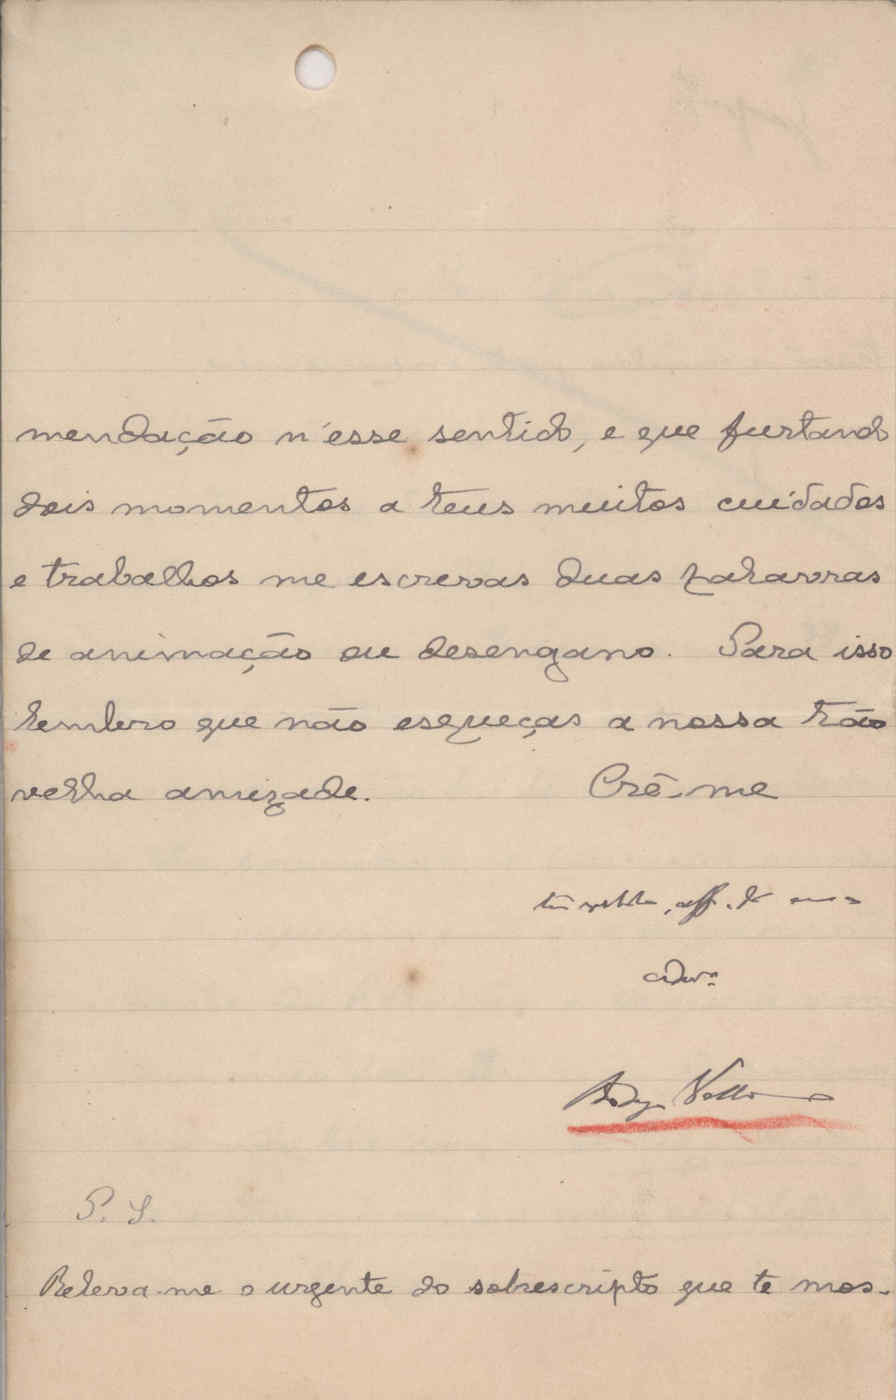 mendação n'esse sentido, e que furtando
dois momentos a teus muitos cuidados
e trabalhos me escrevas duas palavras
de animação ou desengano. Para isso
lembro que não esqueças a nossa tão
velha amizade. Crê-me
teu velho, aff. do
P. S.
Releva-me o urgente do sobrescripto que te mos-